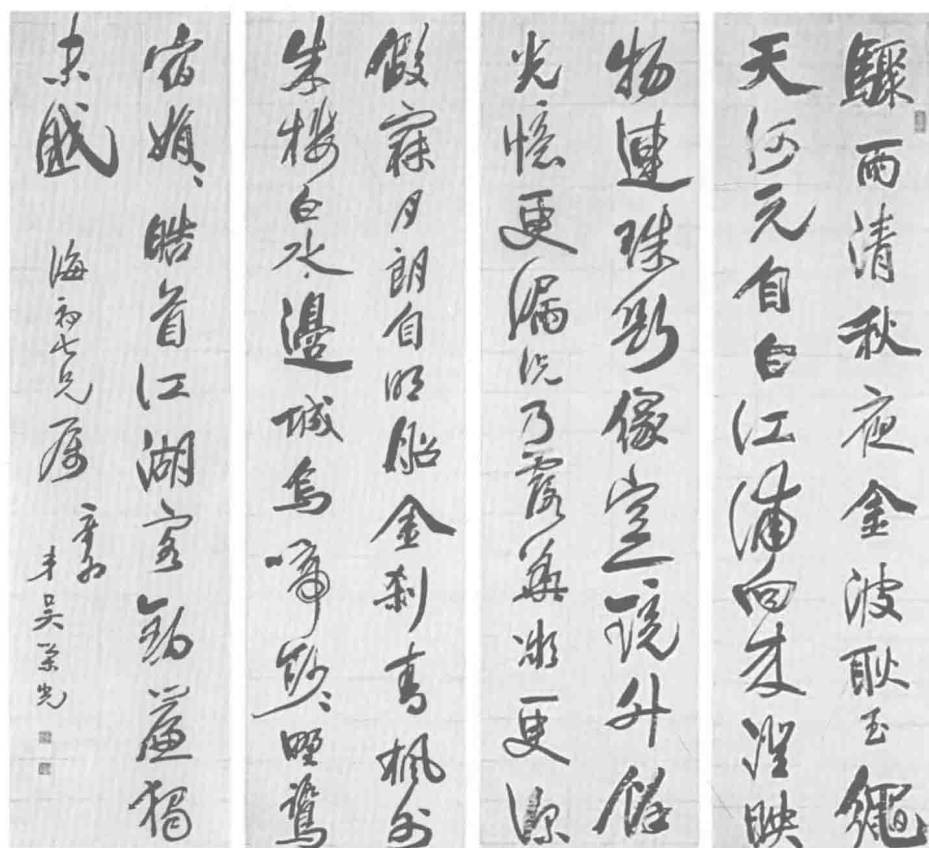 驟雨清秋夜金波耿玉繩
天河元自白江浦向来澄映
物連珠断緣空一鏡升餘
光憶更漏況乃露華凝更深
假寐月朗自明船金刹青楓外
朱樓白水邊城烏啼眇〻野鷺
宿娟〻皓首江湖客鈎簾獨
未眠 海初七兄属
辛卯
弟吴榮光